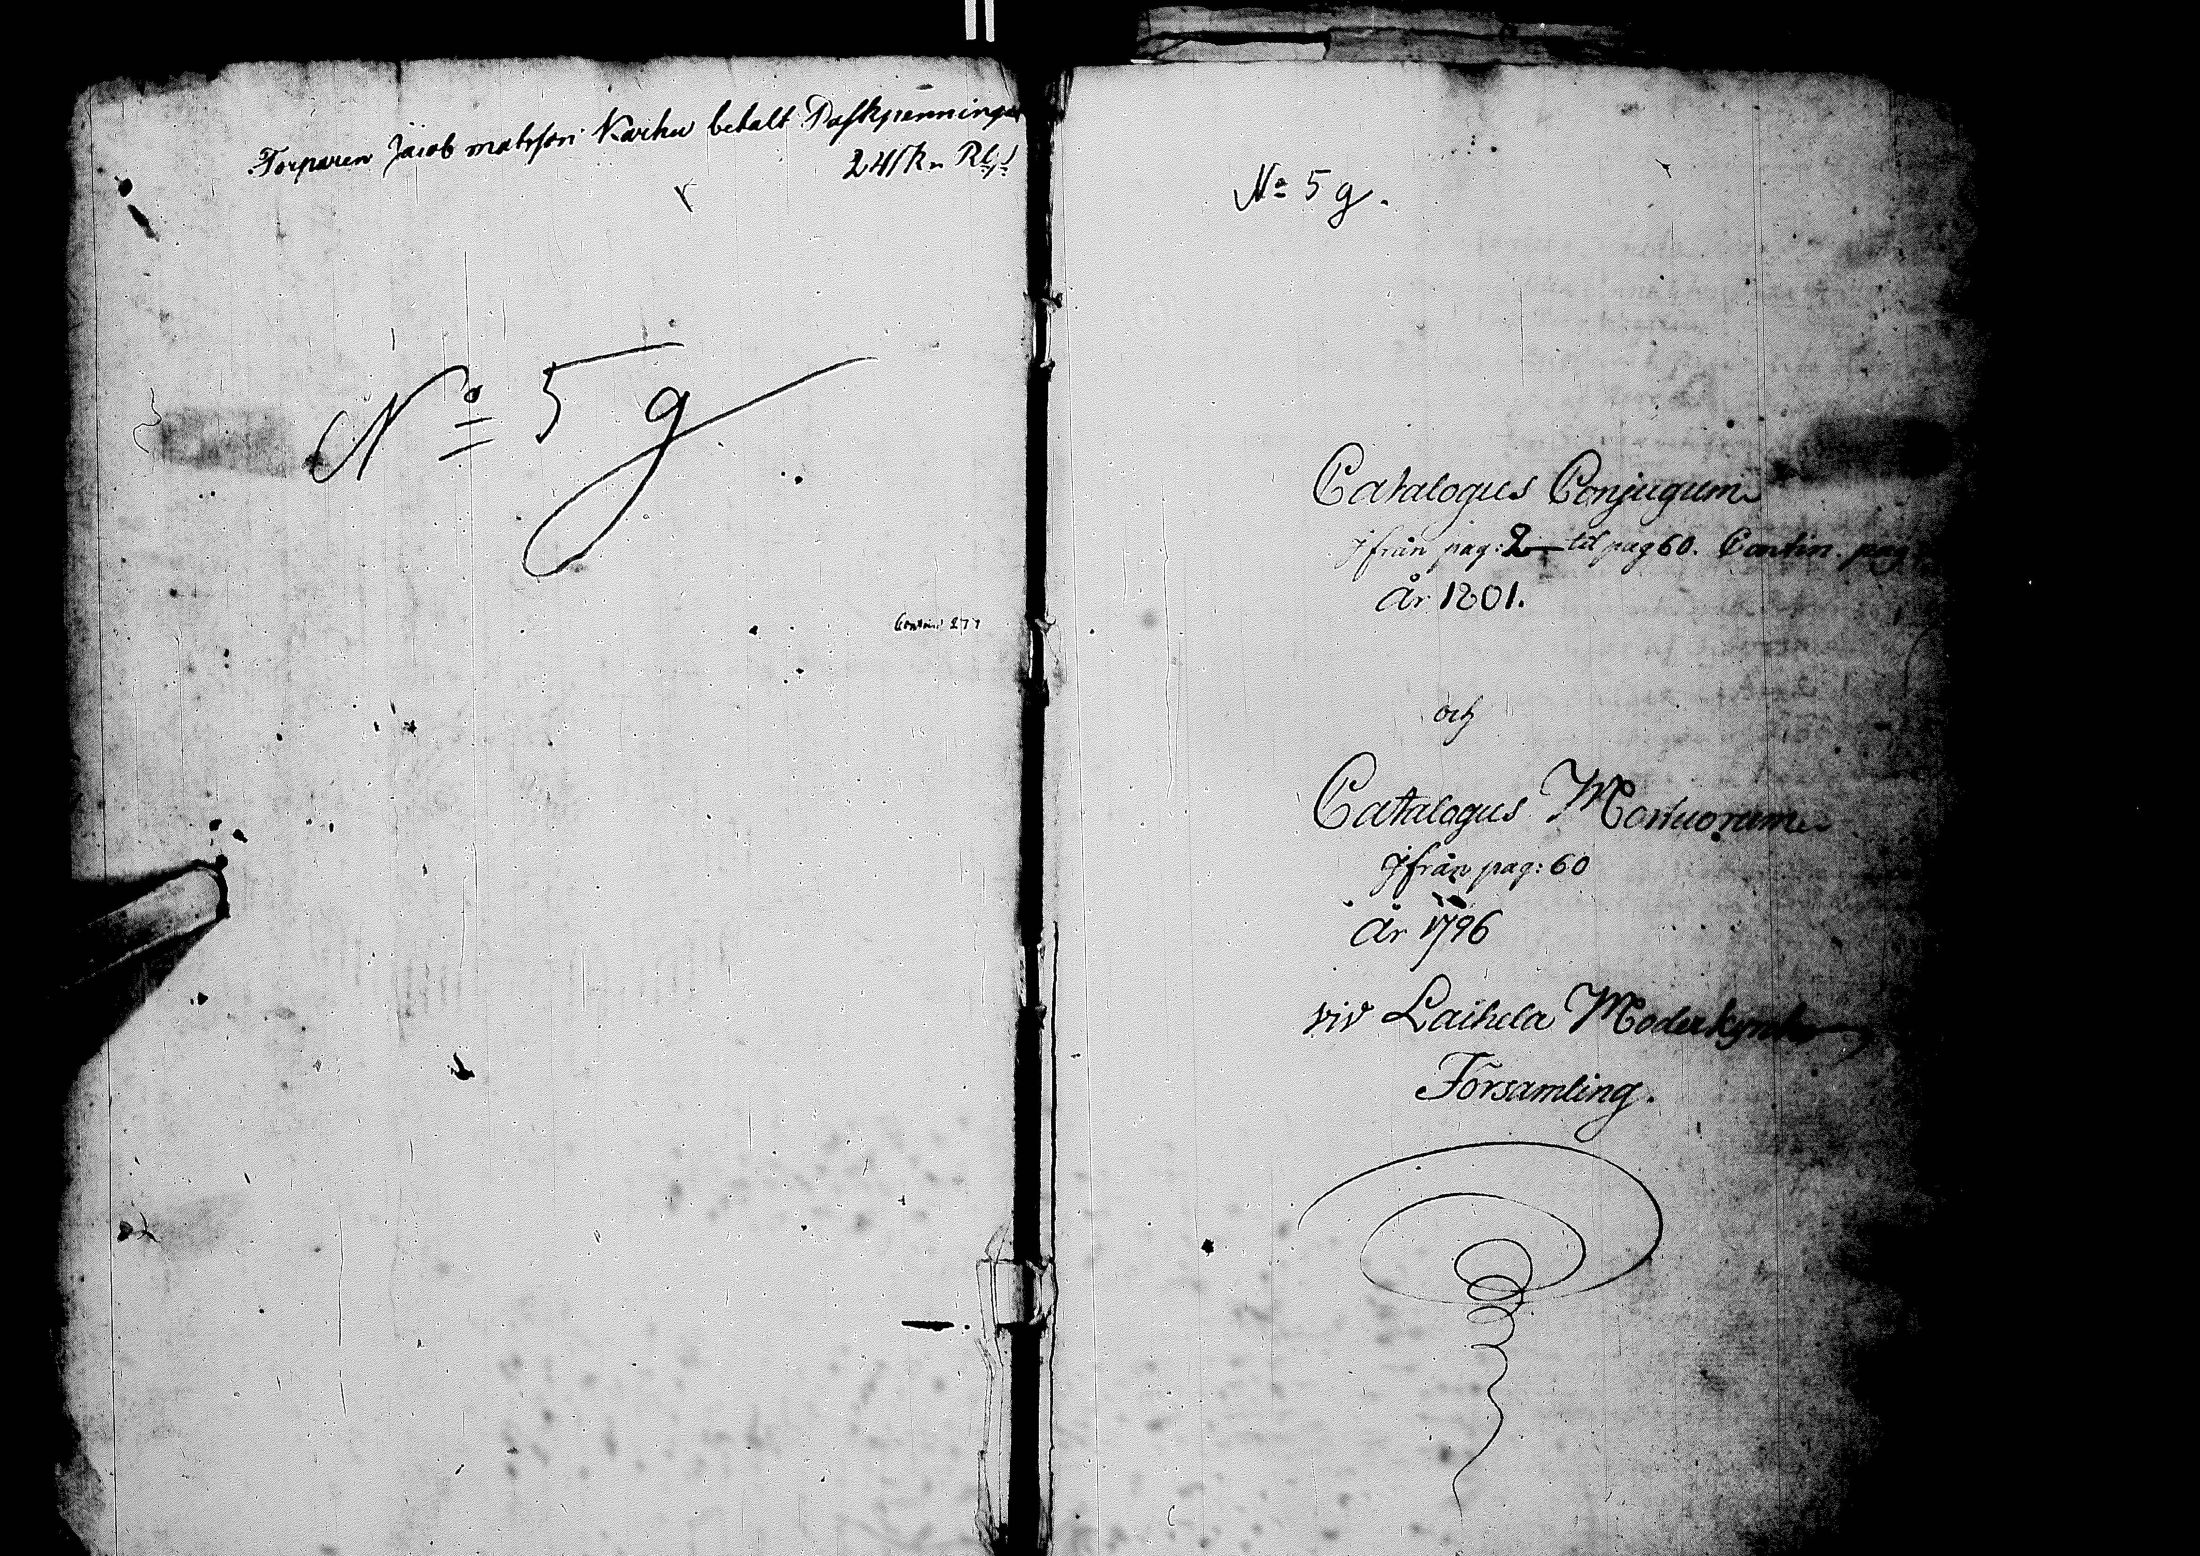 Torparen Jacob matsson Karhu betalt Påskpenningar
24 sk. Rgs
No 5 g
Contin 277
No 5 g.
Catalogus Conjugum
Ifrån pag: 2 til pag 60. Contin. pag
År 1801.
och
Catalogus Mortuorum
Ifrån pag: 60
År 1796
vid Laihela Moderkyrko
Forsamling.